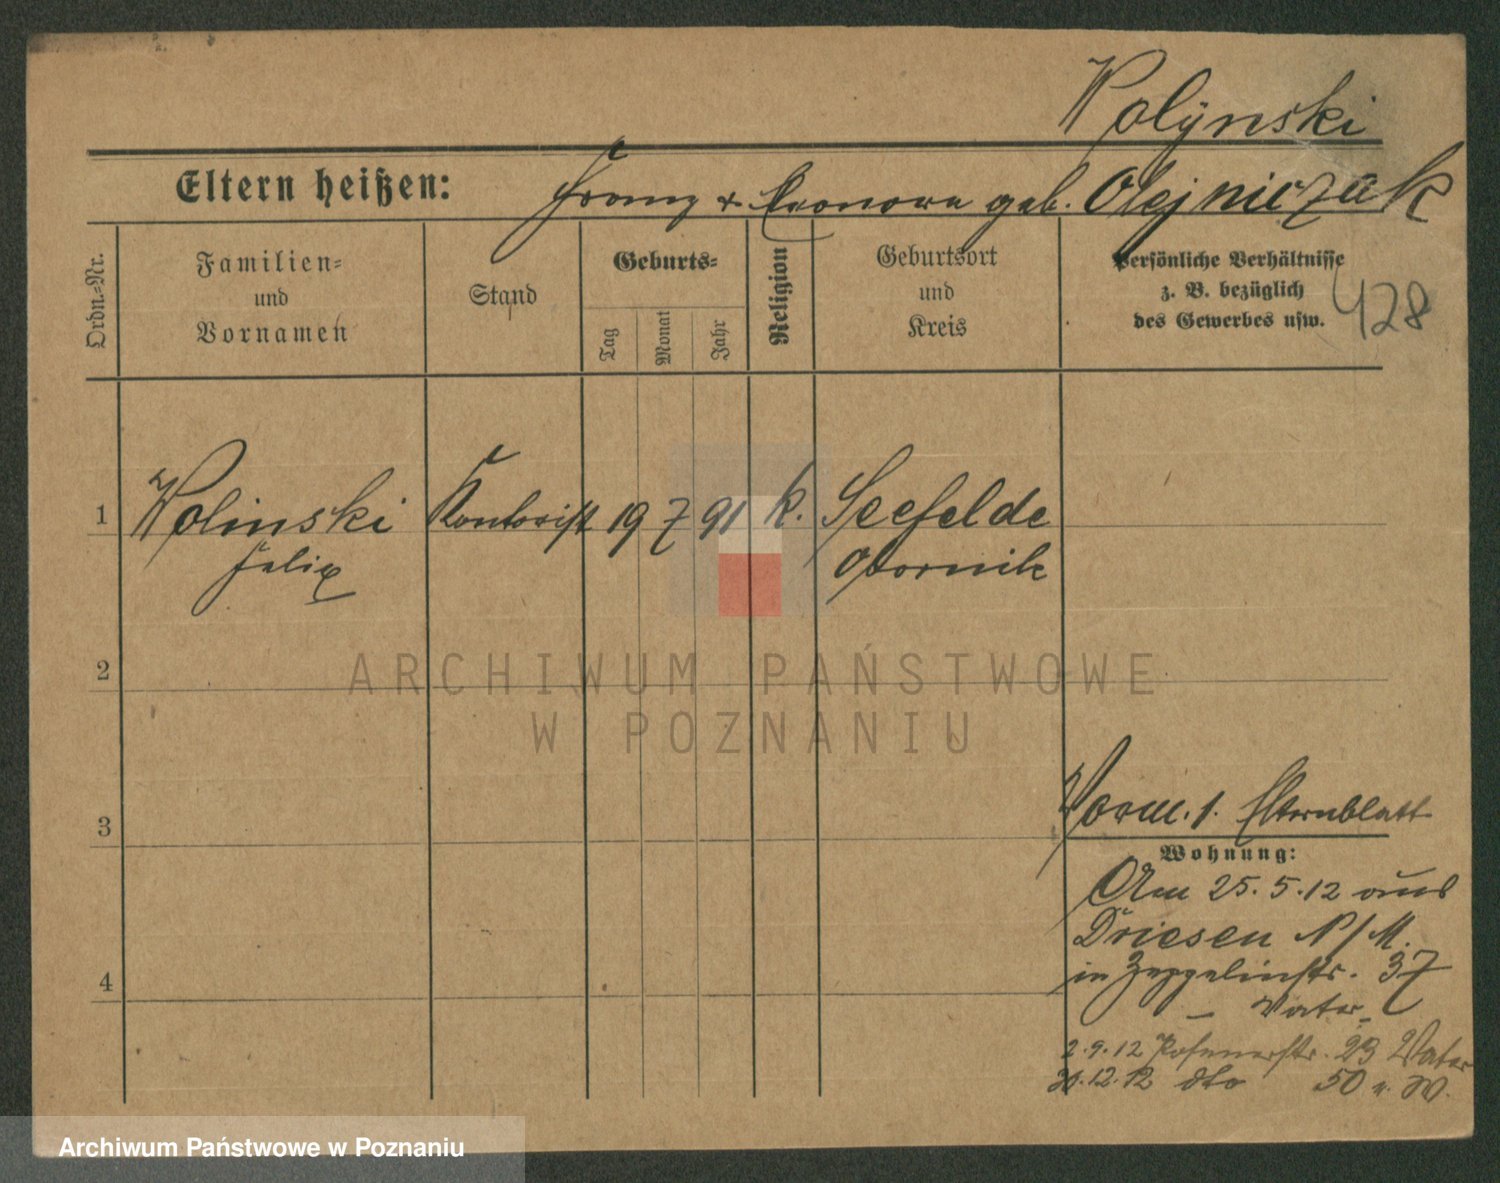 Wolÿnski
Eltern heißen: Franz + Leonora geb. Olejniczak
Ordn.-Nr.
Familien-
und
Vornamen
Stand
Geburts-
Tag
Monat
Jahr
Religion
Geburtsort
und
Kreis
Persönliche Verhältnisse
z. B. bezüglich
des Gewerbes usw.
428
1 Wolinski Kontorist 19 7 91 k. Seefelde
Felix Obornik
2
ARCHIWUM PAŃSTWOWE
W POZNANIU
3
Vorm. 1. Elternblatt
Wohnung:
Am 25.5.12 aus
Driesen N/M.
in Zeppelinstr. 37
– Vater –
4
2.9.12 Posenerstr. 23 Vater
30.12.12 dto 50 u. W.
Archiwum Państwowe w Poznaniu